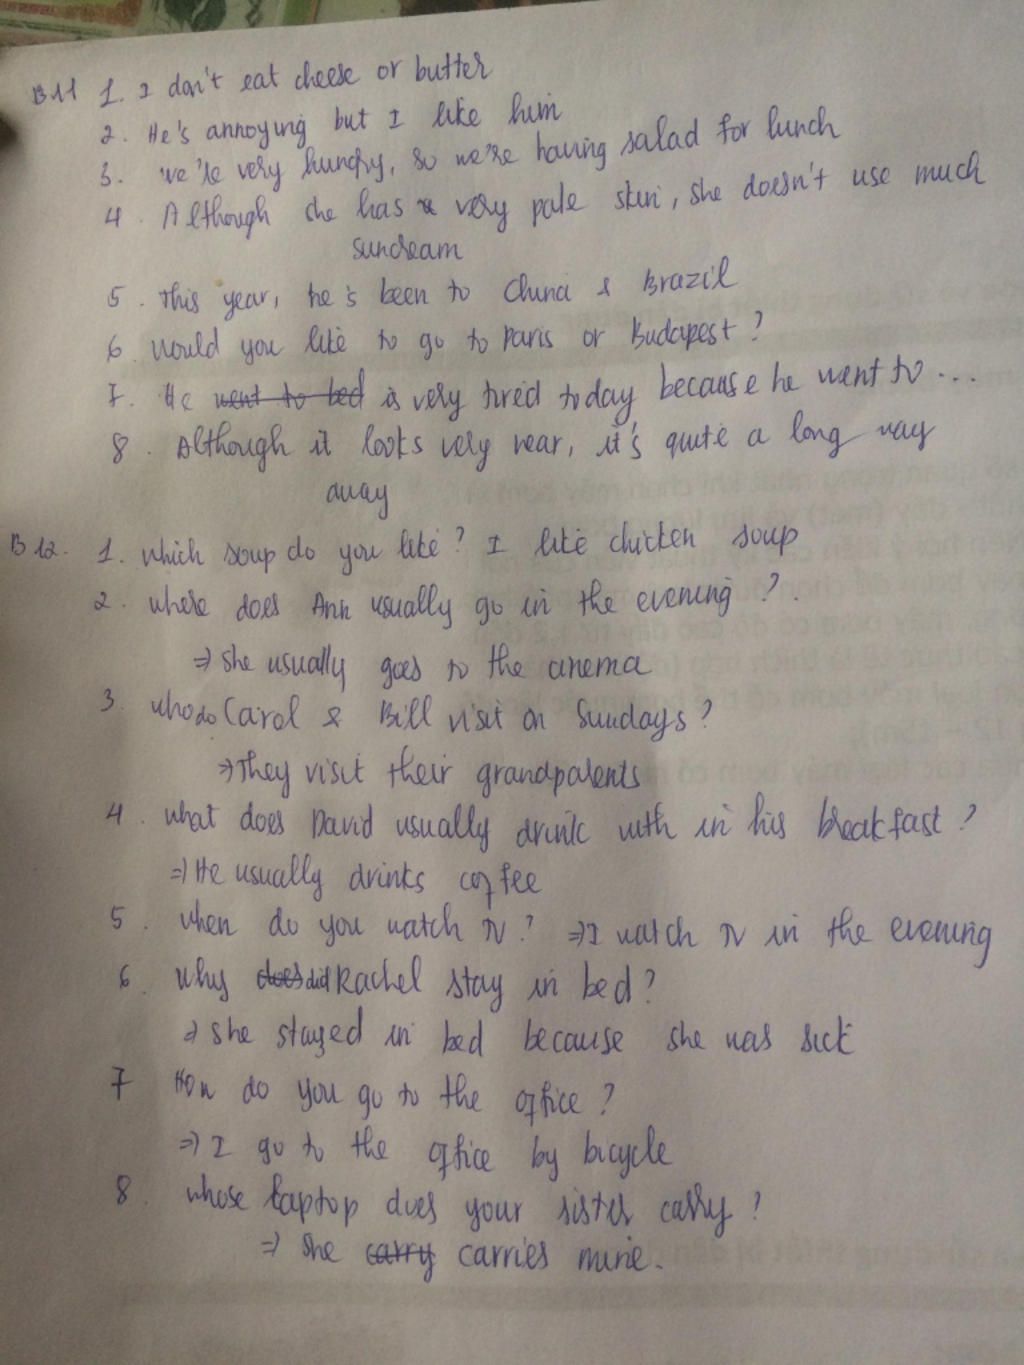 B11 1. I don't eat cheese or butter
2. He's annoying but I like him
3. we're very hungry, so we're having salad for lunch
4. Although she has very pale skin, she doesn't use much
suncream
5. This year, he's been to China & Brazil
6. Would you like to go to Paris or Budapest?
7. He went to bed is very tired today because he went to...
8. Although it looks very near, it's quite a long way
away
B12. 1. which soup do you like? I like chicken soup
2. where does Ann usually go in the evening?.
⇒ she usually goes to the cinema
3. who do Carol & Bill visit on Sundays?
⇒ They visit their grandparents
4. what does David usually drink with in his breakfast?
⇒ He usually drinks coffee
5. when do you watch TV? ⇒ I watch TV in the evening
6. why does did Rachel stay in bed?
⇒ she stayed in bed because she was sick
7 How do you go to the office?
⇒ I go to the office by bicycle
8. whose laptop does your sister carry?
⇒ she carry carries mine.